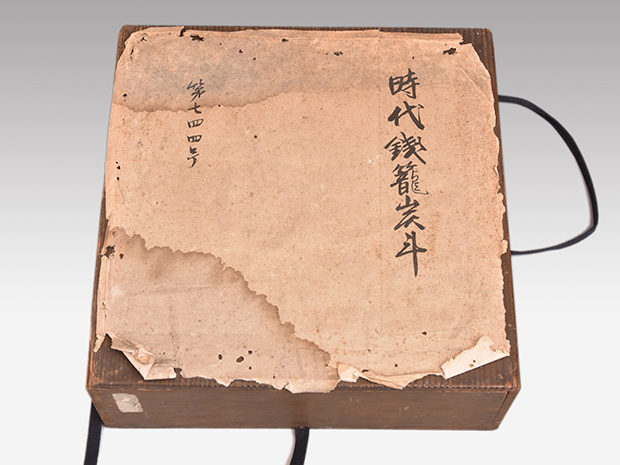 時代銭籠炭斗
第七四四号